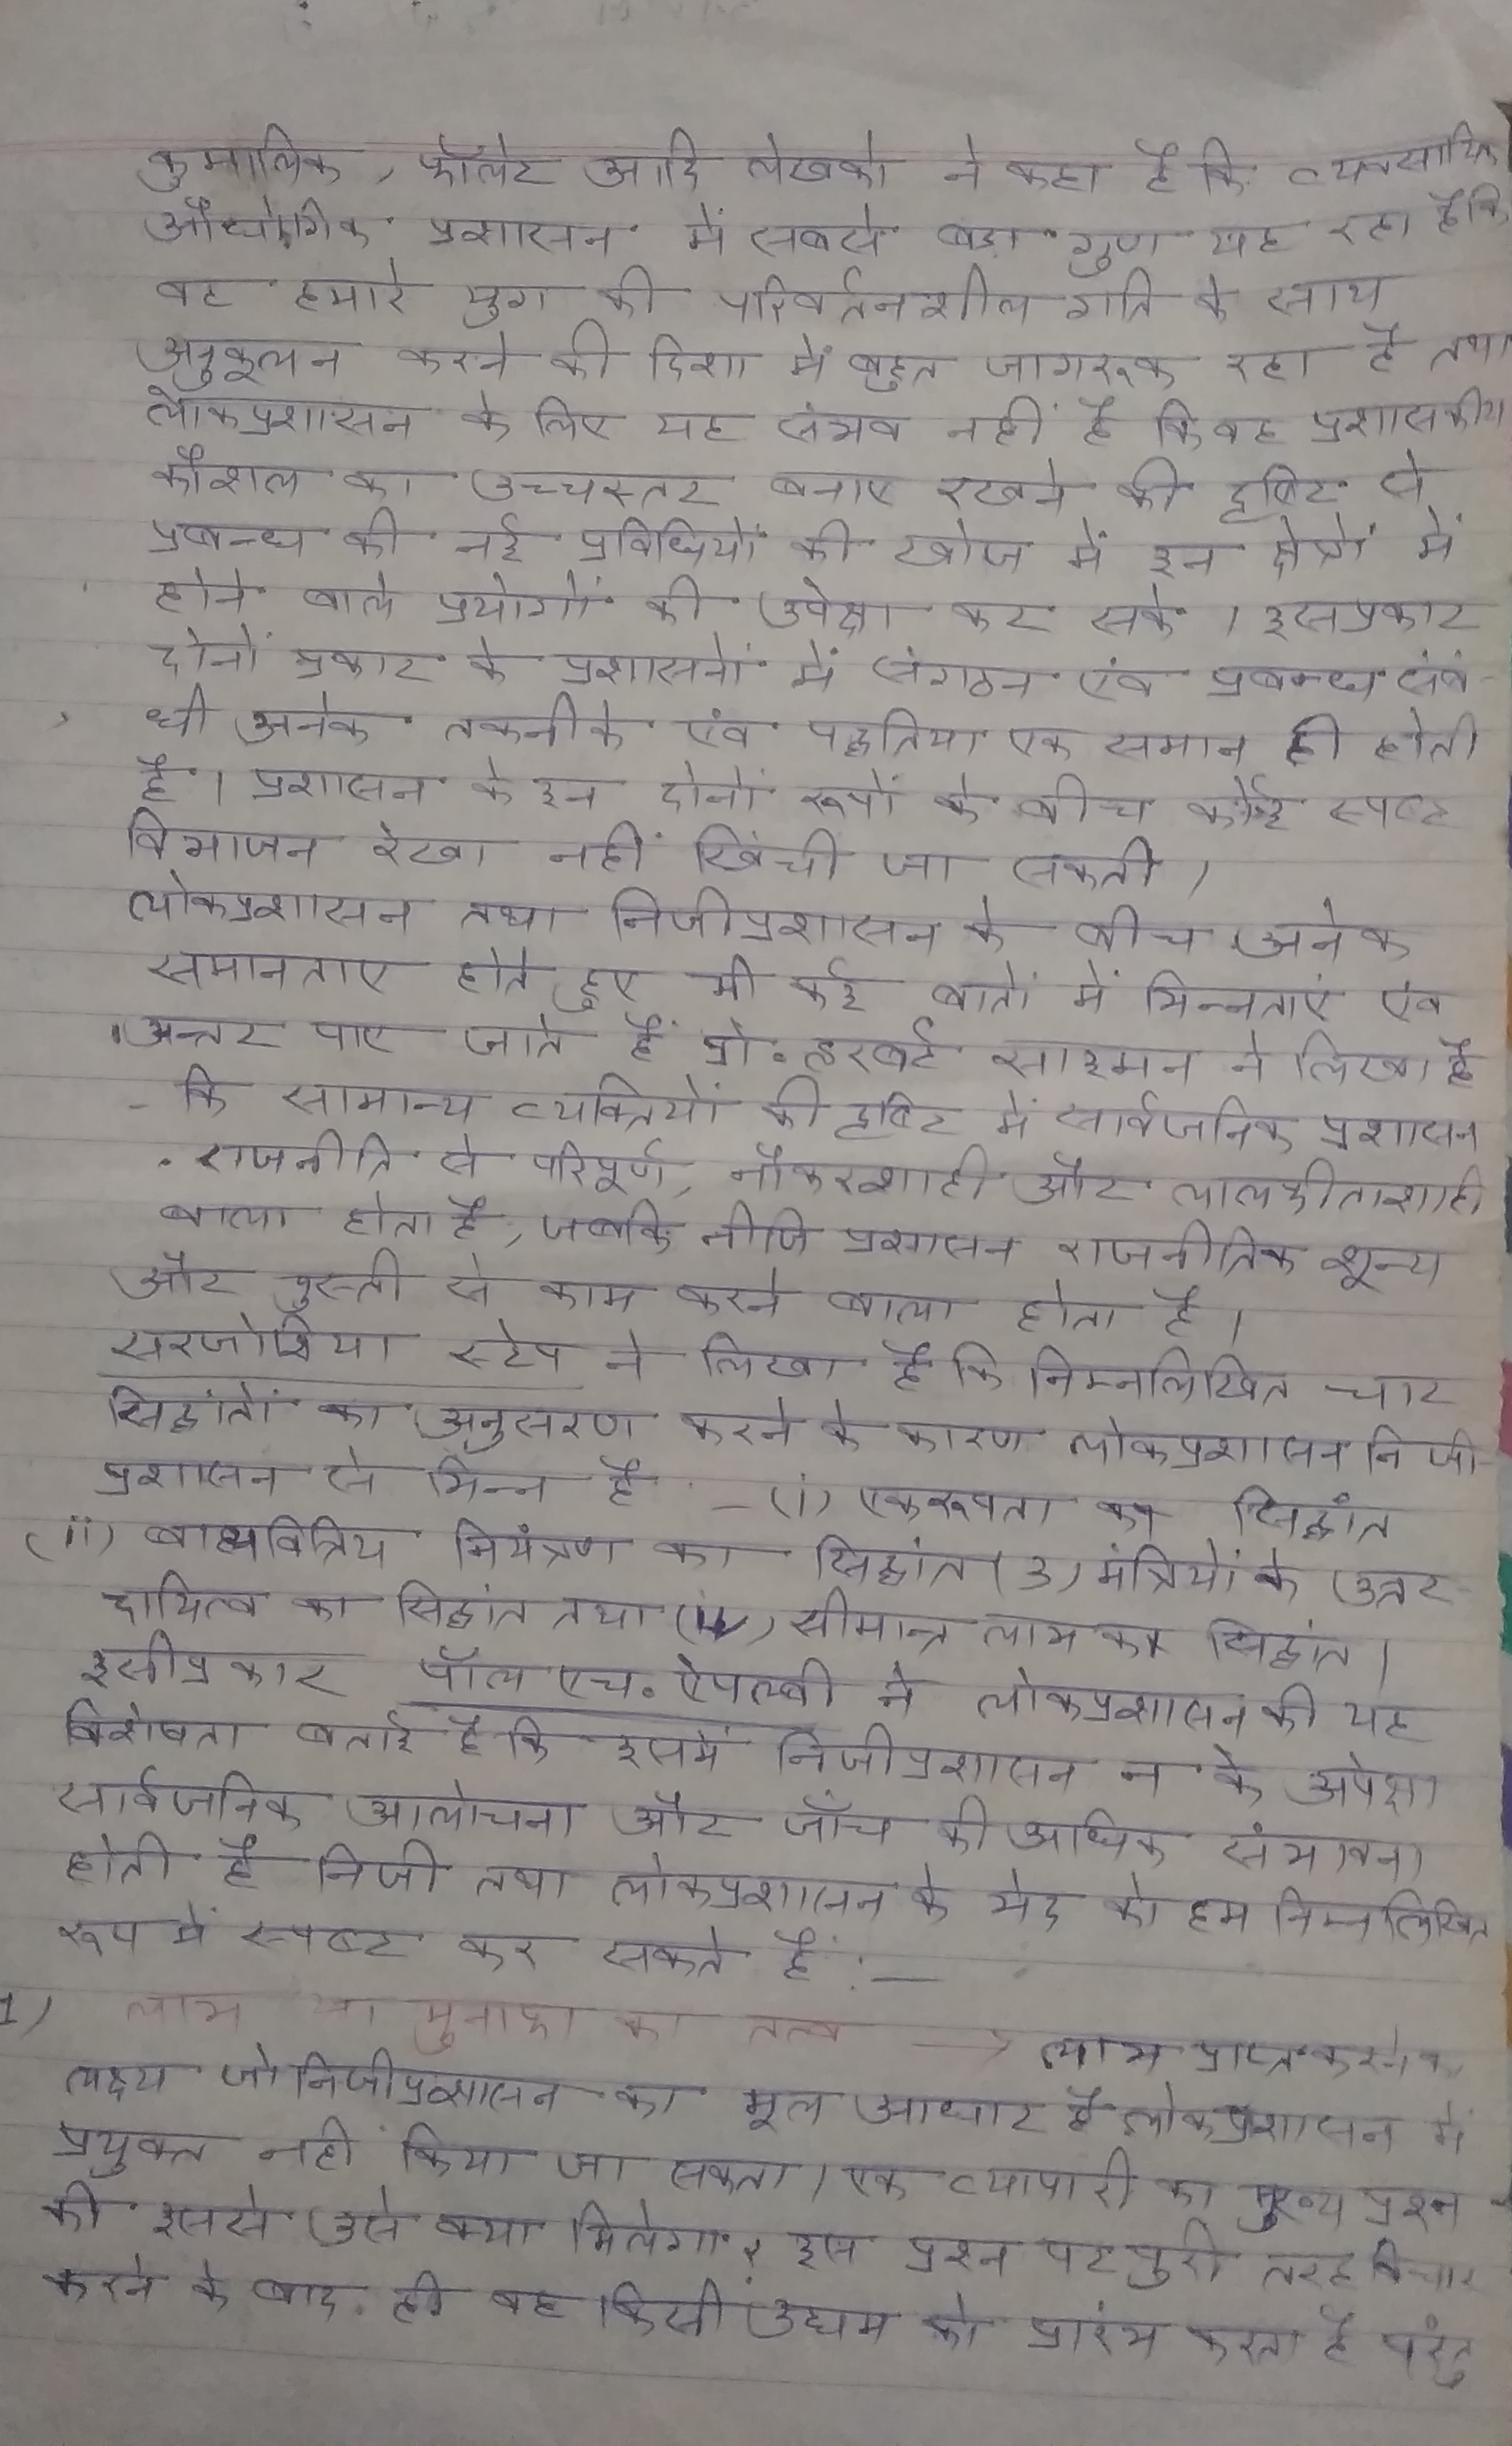 कुमालिक, फॉलेट आदि लेखको ने कहा है कि व्यवसायिक
औद्योगिक प्रशासन में सबसे बड़ा गुण यह रहा है कि
वह हमारे युग की परिवर्तनशील गति के साथ
अनुकूलन करने की दिशा में बहुत जागरूक रहा है तथा
लोकप्रशासन के लिए यह संभव नहीं है कि वह प्रशासकीय
कौशल का उच्चस्तर बनाए रखने की दृष्टि से
प्रबन्ध की नई प्रविधियों की खोज में इन क्षेत्रों में
होने वाले प्रयोगों की उपेक्षा कर सके । इसप्रकार
दोनों प्रकार के प्रशासनों में संगठन एंव प्रबन्ध संबं-
धी अनेक तकनीके एंव पद्धतिया एक समान ही होती
है । प्रशासन के इन दोनों रूपों के बीच कोई स्पष्ट
विभाजन रेखा नहीं खिंची जा सकती ।
लोकप्रशासन तथा निजीप्रशासन के बीच अनेक
समानताए होते हुए भी कई बातों में भिन्नताएं एंव
अन्तर पाए जाते हैं प्रो. हरबर्ट साइमन ने लिखा है
- कि सामान्य व्यक्तियों की दृष्टि में सार्वजनिक प्रशासन
राजनीति से परिपूर्ण, नौकरशाही और लालफीताशाही
वाला होता है, जबकि नीजि प्रशासन राजनीतिक शून्य
और चुस्ती से काम करने वाला होता है ।
सरजोशिया स्टेप ने लिखा है कि निम्नलिखित चार
सिद्धांतों का अनुसरण करने के कारण लोकप्रशासन निजी
प्रशासन से भिन्न है - (i) एकरूपता का सिद्धांत
(ii) बाह्यवित्तिय नियंत्रण का सिद्धांत (3) मंत्रियों के उत्तर-
दायित्व का सिद्धांत तथा (iv) सीमान्त लाभ का सिद्धांत ।
इसीप्रकार पॉल एच. ऐपलबी ने लोकप्रशासन की यह
विशेषता बताई है कि इसमें निजीप्रशासन न के अपेक्षा
सार्वजनिक आलोचना और जाँच की अधिक संभावना
होती है निजी तथा लोकप्रशासन के भेद को हम निम्नलिखित
रूप में स्पष्ट कर सकते हैं :—
1) लाभ या मुनाफा का तत्व → लाभ प्राप्त करने का
लक्ष्य जो निजीप्रशासन का मूल आधार है लोकप्रशासन में
प्रयुक्त नही किया जा सकता । एक व्यापारी का मुख्य प्रश्न
की इससे उसे क्या मिलेगा? इस प्रश्न पर पुरी तरह विचार
करने के बाद ही वह किसी उद्यम को प्रारंभ करता है परंतु